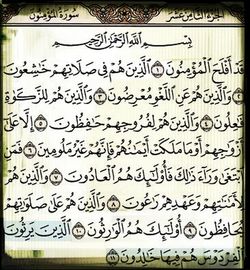 الجزء الثامن عشر سورة المؤمنون
بِسْمِ ٱللَّهِ ٱلرَّحْمَٰنِ ٱلرَّحِيمِ
قَدْ أَفْلَحَ ٱلْمُؤْمِنُونَ ١ ٱلَّذِينَ هُمْ فِى صَلَاتِهِمْ خَٰشِعُونَ
٢ وَٱلَّذِينَ هُمْ عَنِ ٱللَّغْوِ مُعْرِضُونَ ٣ وَٱلَّذِينَ هُمْ لِلزَّكَوٰةِ
فَٰعِلُونَ ٤ وَٱلَّذِينَ هُمْ لِفُرُوجِهِمْ حَٰفِظُونَ ٥ إِلَّا عَلَىٰٓ
أَزْوَٰجِهِمْ أَوْ مَا مَلَكَتْ أَيْمَٰنُهُمْ فَإِنَّهُمْ غَيْرُ مَلُومِينَ ٦ فَمَنِ
ٱبْتَغَىٰ وَرَآءَ ذَٰلِكَ فَأُو۟لَٰٓئِكَ هُمُ ٱلْعَادُونَ ٧ وَٱلَّذِينَ هُمْ
لِأَمَٰنَٰتِهِمْ وَعَهْدِهِمْ رَٰعُونَ ٨ وَٱلَّذِينَ هُمْ عَلَىٰ صَلَوَٰتِهِمْ
يُحَافِظُونَ ٩ أُو۟لَٰٓئِكَ هُمُ ٱلْوَٰرِثُونَ ١٠ ٱلَّذِينَ يَرِثُونَ
ٱلْفِرْدَوْسَ هُمْ فِيهَا خَٰلِدُونَ ١١